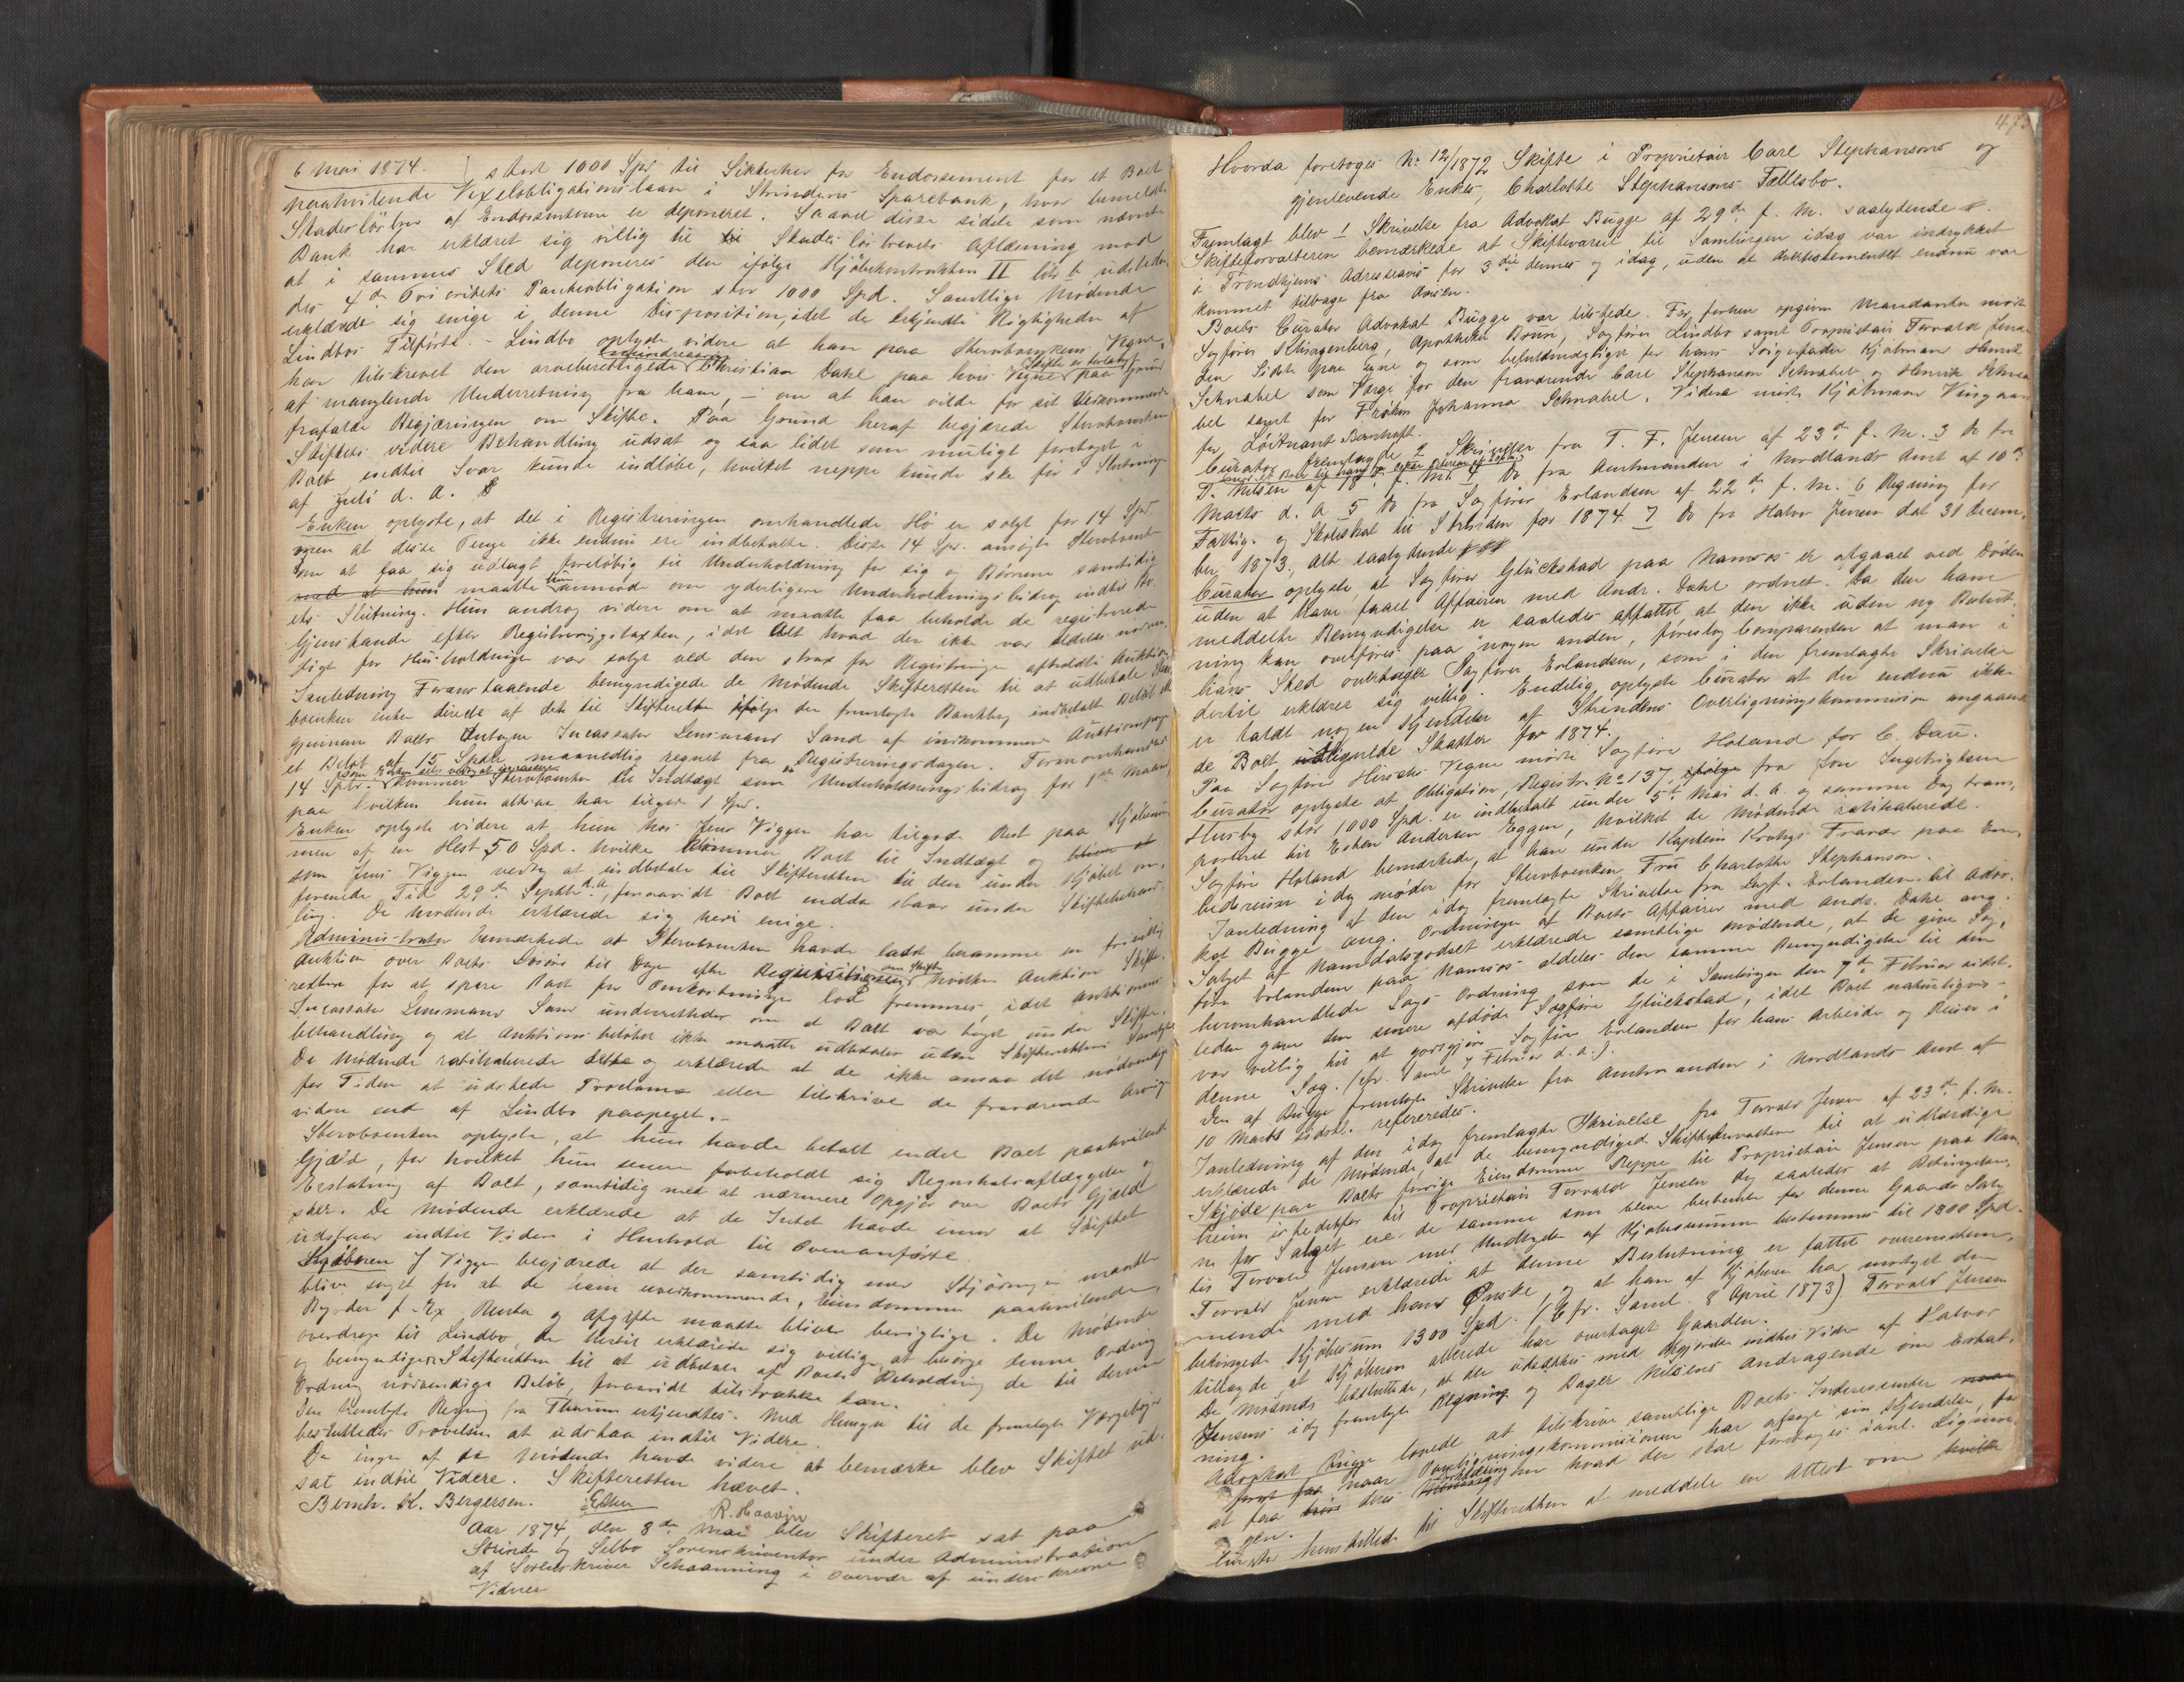 6 Mai 1874. } stort 1000 Spd til Sikkerhed for Endossement for et Boet
paahvilende Vexelobligationslaan i Strindens Sparebank, hvor bemeldte
Skadesløsbrev af Endossenterne er deponeret. Saavel disse sidste som nævnte
Bank har erklæret sig villig til Skadesløsbrevets Aflæsning mod
at i sammes Sted deponeres den ifølge Kjøbekontrakten II litr b udsteden-
des 4de Prioritets Panteobligation stor 1000 Spd. Samtlige Mødende
erklærede sig enige i denne Disposition, idet de erkjendte Rigtigheden af
Lindbos Tilførte. - Lindbo oplyste videre at han paa Stervboenkens Vegne,
har tilskrevet den arveberettigede Christian Dahl paa hvis Vegne Skifte er forlangt paa Grund
af manglende Underretning fra ham, - om at han vilde for sit Vedkommende
frafalde Begjæringen om Skifte. Paa Grund heraf begjærede Stervboenken
Skiftets videre Behandling udsat og saa lidet som muligt foretaget i
Boet indtil Svar kunde indløbe, hvilket neppe kunde ske før i Slutningen
af Juli d. A.
Enken oplyste, at det i Registreringen omhandlede Hø er solgt for 14 Spd.
men at disse Penge ikke endnu ere indbetalte. Disse 14 Spd. ansøgte Stervboenken
om at faa sig udlagt foreløbig til Underholdning for sig og Børnene samtidig
med at hun maatte anmode om yderligere Underholdningsbidrag indtil Bo-
ets Slutning. Hun androg videre om at maatte faa beholde de registrerede
Gjenstande efter Registreringstaxten, idet Alt hvad der ikke var aldeles nødven-
digt for Husholdningen var solgt ved den strax før Registreringen afholdte Auktion
I Anledning Foranstaaende bemyndigede de Mødende Skifteretten til at udbetale Sterv-
boenken enten directe af det til Skifteretten ifølge den fremlagte Bankbog indbetalte Beløb eller
gjennem Boets Incassator Lensmand Sand af indkommende Auktionspenge
et Beløb af 15 Spdlr maanedlig regnet fra Registreringsdagen. Formomhandlede
14 Spdlr. kommer Stervboenken til Indtægt som Underholdningsbidrag for 1ste Maaned
paa hvilken hun altsaa har tilgode 1 Spd.
Enken oplyste videre at hun hos Jens Viggen har tilgode Rest paa Kjøbesum-
men af en Hest 50 Spd. hvilke kommer Boet til Indtægt og bliver at
som Jens Viggen vedtog at indbetale til Skifteretten til den under Kjøbet om-
forenede Tid 29de Septbr d.A, forsaavidt Boet endda staar under Skiftebehand-
ling. De Mødende erklærede sig heri enige.
Administrator bemærkede at Stervboenken havde ladet beramme en frivillig
Auktion over Boets Løsøre til Dage efter Requisitionen om Skifte hvilken Auktion Skifte-
retten for at spare Boet for Omkostninger lod fremmes, idet Auktionens
Incassator Lensmand Sand underrettedes om at Boet var taget under Skifte-
behandling og at Auktionsbeløbet ikke maatte udbetales uden Skifterettens Samtykke
De Mødende ratihaberede dette og erklærede at de ikke ansaa det nødvendigt
for Tiden at udstede Proclama eller tilskrive de fraværende Arvinger
videre end af Lindbo paapeget. -
Stervboenken oplyste, at hun havde betalt endel Boet paahvilende
Gjæld, for hvilket hun senere forbeholdt sig Regnskabsaflæggelse og
Erstatning af Boet, samtidig med at nærmere Opgjør over Boets Gjæld
sker. De Mødende erklærede at de Intet havde imod at Skiftet
udstaar indtil Videre i Henhold til Ovenanførte.
Kjøberen J Viggen begjærede at der samtidig med Skjødningen maatte
blive sørget for at de ham uvedkommende, Eiendommen paahvilende
Byrder f. Ex. Renter og Afgifter maatte blive berigtiget. De Mødende
overdrog til Lindbo, der hertil erklærede sig villig, at besørge denne Ordning
og bemyndiger Skifteretten til at udbetale af Boets Beholdning de til denne
Ordning nødvendige Beløb, forsaavidt tilstrække kan.
Den fremlagte Regning fra Thaum erkjendtes. Med Hensyn til de fremlagte Værgebøger
besluttedes Prøvelsen at udstaa indtil Videre.
Da ingen af de Mødende havde videre at bemærke blev Skiftet ud-
sat indtil Videre. Skifteretten hævet.
Bernh. H. Bergersen. Esten
R. Haavin
Aar 1874, den 8de Mai blev Skifteret sat paa
Strinde og Selbo Sorenskriverkontor under Administration
af Sorenskriver Schaanning i Overvær af underskrevne
Vidner
473
Hvorda foretoges No 12/1872 Skifte i Proprietair Carl Stephansons og
gjenlevende Enkes, Charlotte Stephansons Fællesbo.
Fremlagt blev 1 Skrivelse fra Advokat Bugge af 29de f. M. saalydende
Skifteforvalteren bemærkede at Skiftevarsel til Samlingen idag var indrykket
i Trondhjems Adresseavis for 3die dennes og idag, uden at Avertissementet endnu var
kommet tilbage fra Avisen.
Boets Curator Advokat Bugge var tilstede. For forhen opgivne Mandanter mødte
Sagfører Klingenberg, Apotheker Bruun, Sagfører Lindbo samt Proprietair Torvald Jensen
den Sidste Egne Vegne og som befuldmægtiget for hans Svigerfader Kjøbmand Henrik
Schnabel som Værge for den fraværende Carl Stephanson Schnabel og Henrik Schna-
bel samt for Frøken Johanna Schnabel. Videre mødte Kjøbmand Vingaard
for Løitnant Bernhoft.
Curator fremlagde 2 Skrivelse fra T. F. Jensen af 23de f. M. 3 Do fra
D. Nilsen af 18de f. M. 4 Do fra Amtmanden i Nordlands Amt af 10de
Marts d. A 5 Do fra Sagfører Erlandsen af 22de f. M. 6 Regning for
Fattig- og Skoleskat til Strinden for 1874 7 Do fra Halvor Jensen dat 31 Decem-
ber 1873, Alt saalydende
Curator oplyste at Sagfører Glückstad paa Namsos er afgaaet ved Døden
uden at have faaet Affairen med Andr. Dahl ordnet. Da den ham
meddelte Bemyndigelse er saaledes affattet at den ikke uden ny Beslut-
ning kan overføres paa nogen anden, foreslog Comparenten at man i
hans Sted overdrager Sagfører Erlandsen, som i den fremlagte Skrivelse
dertil erklærer sig villig. Endelig oplyste Curator at der endnu ikke
er faldt nogen Kjendelse af Strindens Overligningskommission angaaende
de Boet ilignede Skatter for 1874.
Paa Sagfører Hirschs Vegne mødte Sagfører Høland for C. Dau.
Curator oplyste at Obligation, Registr. No 137 fra Jon Ingebrigtsen
Husby stor 1000 Spd. er indbetalt under 5te Mai d. A. og samme Dag trans-
porteret til Esten Andersen Eggen, hvilket de Mødende ratihaberede.
Sagfører Høland bemærkede, at han under Kaptein Krohgs Fravær paa Em-
bedsreise idag møder for Stervboenken Fru Charlotte Stephanson.
I Anledning af den idag fremlagte Skrivelse fra Sagf. Erlandsen til Advo-
kat Bugge ang. Ordningen af Boets Affairer med Andr. Dahl ang.
Salget af Namdalsgodset erklærede samtlige Mødende, at de give Sag-
fører Erlandsen paa Namsos aldeles den samme Bemyndigelse til den
heromhandlede Sags Ordning som de i Samlingen den 7de Februar sidst-
leden gave den senere afdøde Sagfører Glückstad, idet Boet naturligvis
var villig til at godtgjøre Sagfører Erlandsen for hans Arbeide og Reiser i
denne Sag. (cfr. Saml 7 Februar d. A.).
Den af Bugge fremlagte Skrivelse fra Amtmanden i Nordlands Amt af
10 Marts sidstl. refereredes.
I Anledning af den idag fremlagte Skrivelse fra Torvald Jensen af 23de f. M.
erklærede de Mødende, at de bemyndiged Skifteforvalteren til at udfærdige
Skjøde paa Boets forrige Eiendomme Reppe til Proprietair Jensen paa Ran-
heim istedetfor til Proprietair Torvald Jensen dog saaledes at Betingelser-
ne for Salget ere de samme som bleve bestemte for denne Gaards Salg
til Torvald Jensen med Undtagelse af Kjøbesummen bestemmes til 1300 Spd.
Torvald Jensen erklærede at denne Beslutning er fattet overensstem-
mende med hans Ønske, og at han af Kjøberen har modtaget den
betingede Kjøbesum 1300 Spd. (Cfr. Saml. 8 April 1873) Torvald Jensen
tillagde, at Kjøberen allerede har overtaget Gaarden.
De Mødende besluttede, at der udsættes med Afgjørelse indtil Videre af Halvor
Jensens idag fremlagte Regning og Dager Nilsens Andragende om Erstat-
ning.
Advokat Bugge lovede at tilskrive samtlige Boets Interessenter
naar Overligningskommissionen har afsagt sin Kjendelse, for
at faa deres Erklæring om hvad der skal foretages i anl. Lignin-
gen.
Curator henstillede til Skifteretten at meddele en Attest om